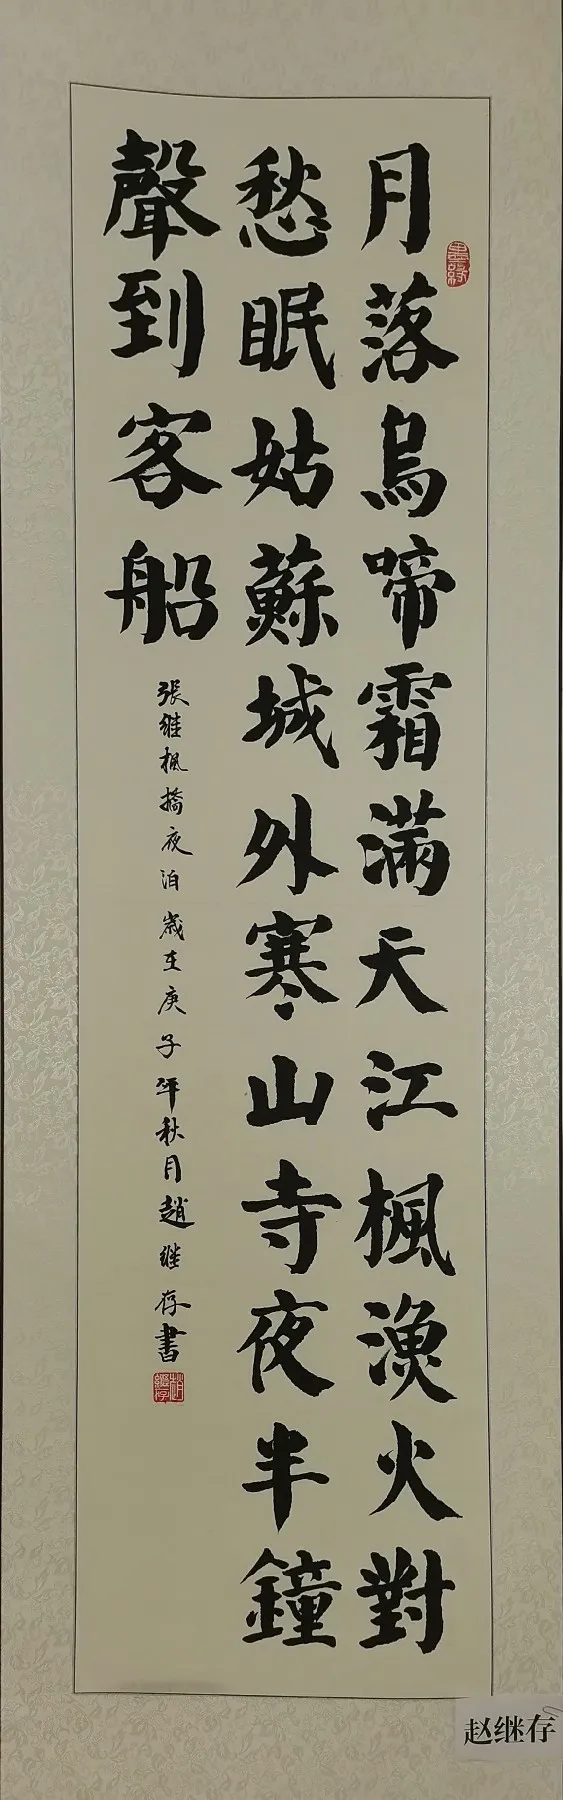 月落烏啼霜滿天江楓漁火對
愁眠姑蘇城外寒山寺夜半鐘
聲到客船
張継楓橋夜泊歲在庚子年秋月趙継存書
墨緣
趙繼存
赵继存